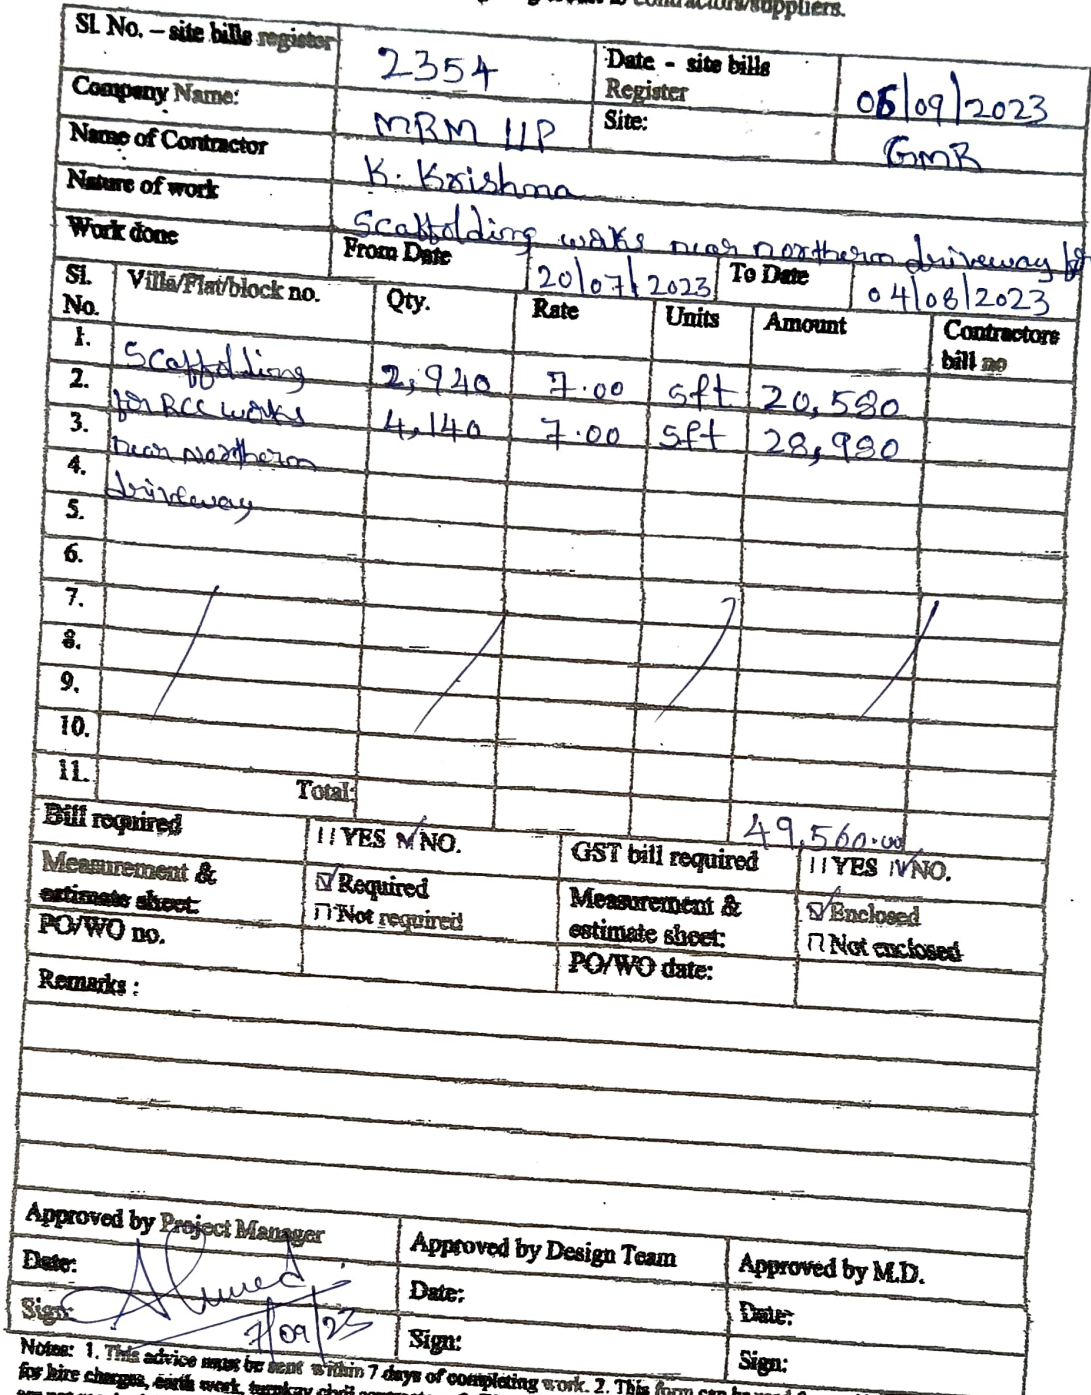 contractors/suppliers.
Sl. No. – site bills register 2354 Date - site bills Register 05/09/2023
Company Name: MRM LLP Site: GMR
Name of Contractor K. Krishna
Nature of work Scaffolding works near northern driveway
Work done From Date 20/07/2023 To Date 04/08/2023
Sl. No. Villa/Flat/block no. Qty. Rate Units Amount Contractors bill no
1. Scaffolding 2,940 7.00 sft 20,580
2. for RCC works 4,140 7.00 sft 28,980
3. near northern
4. driveway
5.
6.
7.
8.
9.
10.
11. Total: 49,560.00
Bill required YES NO. GST bill required YES NO.
Measurement & estimate sheet: Required Measurement & estimate sheet: Enclosed
Not required Not enclosed
PO/WO no. PO/WO date:
Remarks :
Approved by Project Manager Approved by Design Team Approved by M.D.
Date: Date: Date:
Sign: Ahmed 7/09/23 Sign: Sign:
Notes: 1. This advice must be sent within 7 days of completing work. 2. This form can be used
for hire charges, earth work, turnkey civil